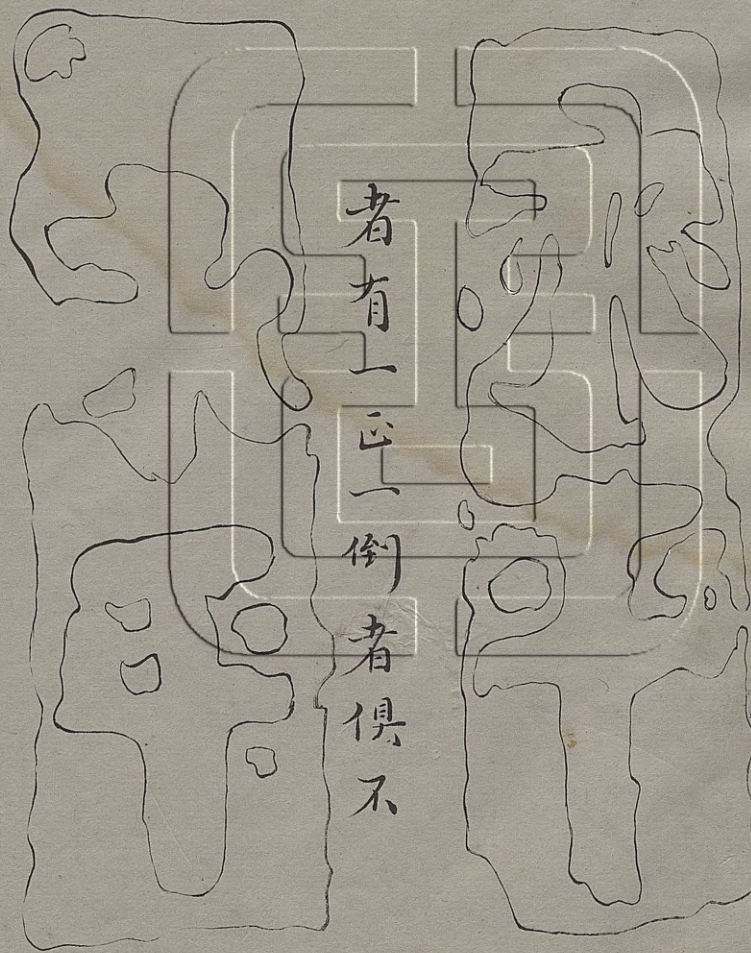 者有一正一倒者俱不